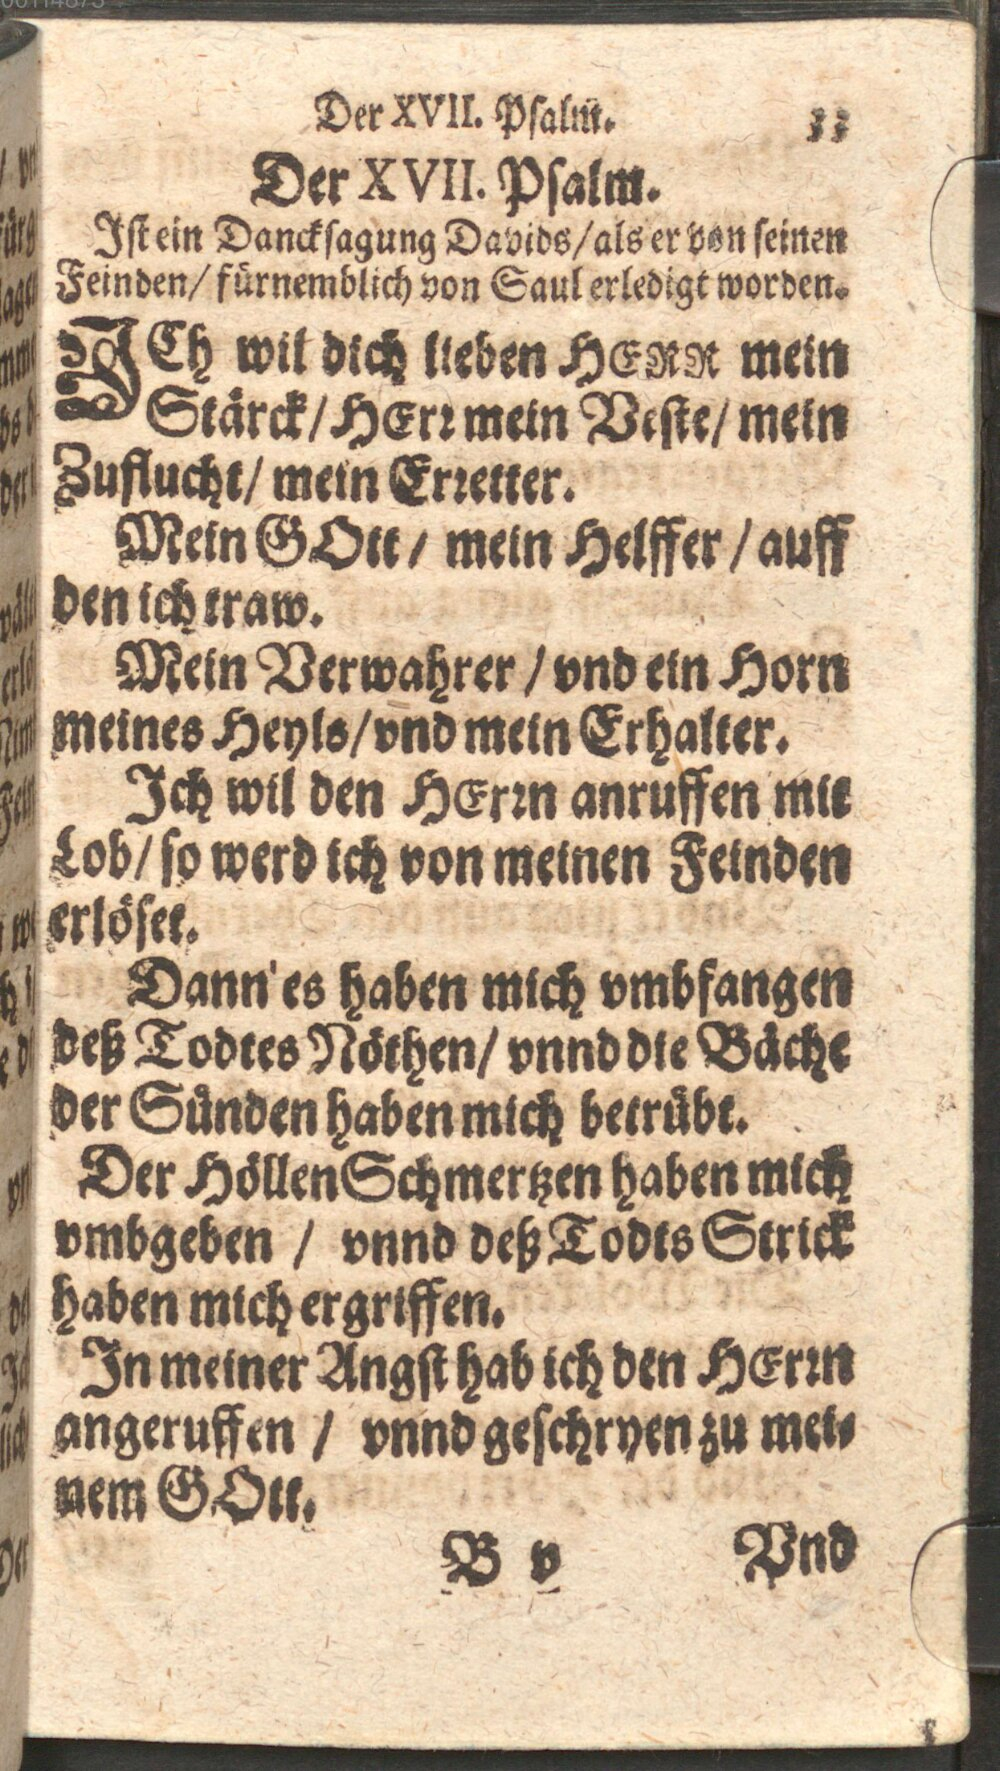 Der XVII. Psalm. 33
Der XVII. Psalm.
Ist ein Dancksagung Davids/als er von seinen
Feinden/ fürnemblich von Saul erledigt worden.
ICh wil dich lieben HERR mein
Stärck/HErr mein Veste/ mein
Zuflucht/ mein Erretter.
Mein GOtt / mein Helffer / auff
den ich traw.
Mein Verwahrer / vnd ein Horn
meines Heyls/vnd mein Erhalter.
Ich wil den HErrn anruffen mit
Lob/ so werd ich von meinen Feinden
erlöset.
Dann es haben mich vmbfangen
deß Todtes Nöthen/ vnnd die Bäche
der Sünden haben mich betrübt.
Der Höllen Schmertzen haben mich
vmbgeben / vnnd deß Todts Strick
haben mich ergriffen.
In meiner Angst hab ich den HErrn
angeruffen / vnnd geschryen zu mei-
nem GOtt.
B v Vnd